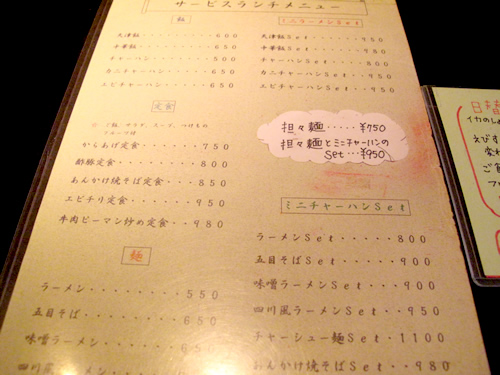 サービスランチメニュー
飯
天津飯・・・・・・・・・600
中華飯・・・・・・・・・650
チャーハン・・・・・・・500
カニチャーハン・・・・・650
エビチャーハン・・・・・650
定食
※ご飯、サラダ、スープ、つけもの
フルーツ付
からあげ定食・・・・・・750
酢豚定食・・・・・・・・800
あんかけ焼そば定食・・・850
エビチリ定食・・・・・・950
牛肉ピーマン炒め定食・・980
麺
ラーメン・・・・・・・・・550
五目そば・・・・・・・・・650
味噌ラーメン・・・・・・650
四川風ラーメン
ミニラーメンSet
天津飯Set・・・・・・950
中華飯Set・・・・・・950
チャーハンSet・・・・800
カニチャーハンSet・・950
エビチャーハンSet・・950
担々麺・・・・・¥750
担々麺とミニチャーハンの
Set・・・¥950
ミニチャーハンSet
ラーメンSet・・・・・・800
五目そばSet・・・・・・900
味噌ラーメンSet・・・・900
四川風ラーメンSet・・・950
チャーシュー麺Set・・1100
あんかけ焼そばSet・・980
日替
イカのしょ
えびす
変わ
ご